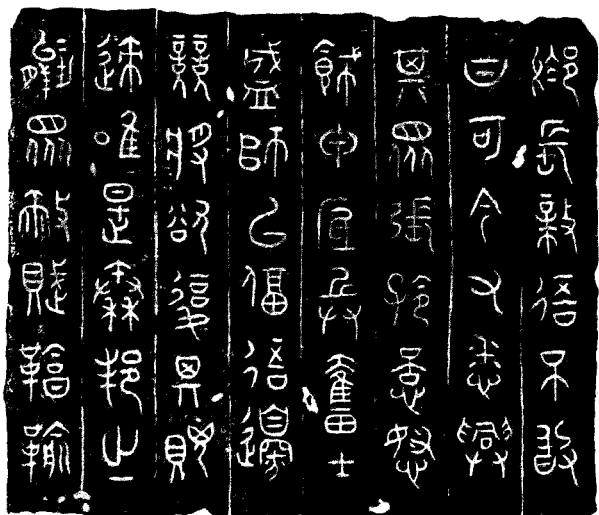 長敘吾不敢
曰可今又悉興
其眾張矜意怒
飾甲底兵奮士
盛師以偪吾邊
競將欲復其
速唯是秦邦之
羸眾敝賦䩱